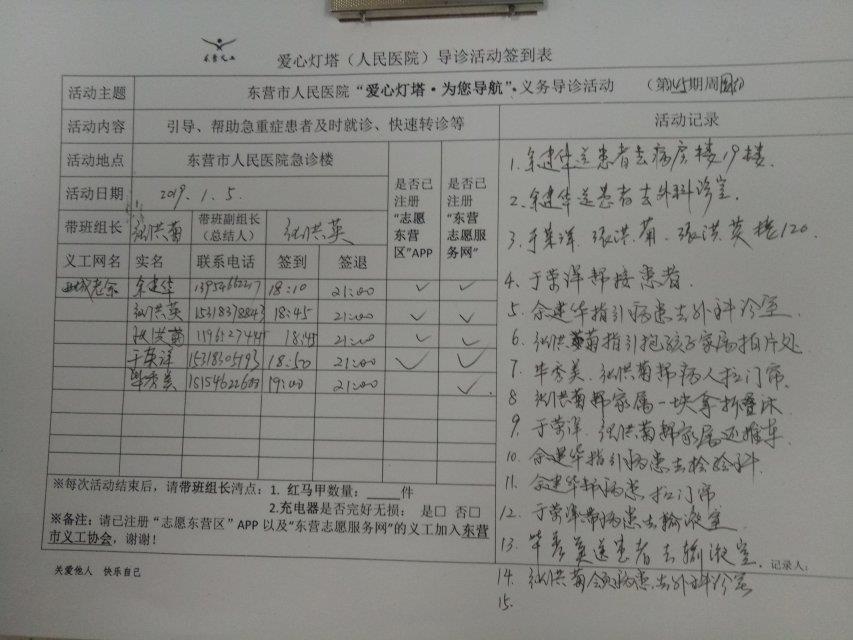 东营义工
爱心灯塔（人民医院）导诊活动签到表
活动主题 东营市人民医院“爱心灯塔·为您导航”·义务导诊活动 （第145期周六）
活动内容 引导、帮助急重症患者及时就诊、快速转诊等 活动记录
活动地点 东营市人民医院急诊楼 是否已注册“志愿东营区”APP 是否已注册“东营志愿服务网”
活动日期 2019.1.5.
带班组长 张洪菊 带班副组长（总结人） 张洪英
义工网名 实名 联系电话 签到 签退
余建华 18:10 21:00 ✓ ✓
张洪英 15318378843 18:45 21:00 ✓ ✓
张洪菊 18:45 21:00 ✓ ✓
于荣洋 15318305793 18:50 21:00 ✓ ✓
毕秀英 19:00 21:00 ✓
※每次活动结束后，请带班组长清点：1. 红马甲数量：_____件
2.充电器是否完好无损： 是□ 否□
※备注：请已注册“志愿东营区”APP 以及“东营志愿服务网”的义工加入东营
市义工协会，谢谢！
1. 余建华送患者去病房楼19楼.
2. 余建华送患者去外科诊室.
3. 于荣洋、张洪菊、张洪英接120.
4. 于荣洋帮接患者.
5. 余建华指引病患去外科诊室
6. 张洪菊指引抱孩子家属拍片处
7. 毕秀英、张洪菊帮病人拉门帘.
8 张洪菊帮家属一块拿折叠床
9. 于荣洋、张洪菊帮家属还推车
10. 余建华指引病患去检验科
11. 余建华帮病患拉门帘
12. 于荣洋带病患去输液室
13. 毕秀英送患者去输液室.
记录人：
14. 张洪菊领病患去外科诊室
15.
关爱他人 快乐自己